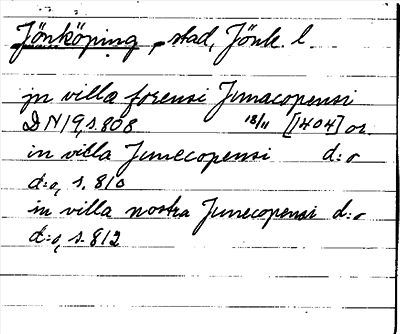 Jönköping, stad, Jönk. l.
in villa forensi Junacopensi
DN 19, s. 808 18/11 [1404] or.
in villa Junecopensi d:o
d:o, s. 810
in villa nostra Junecopensi d:o
d:o, s. 812